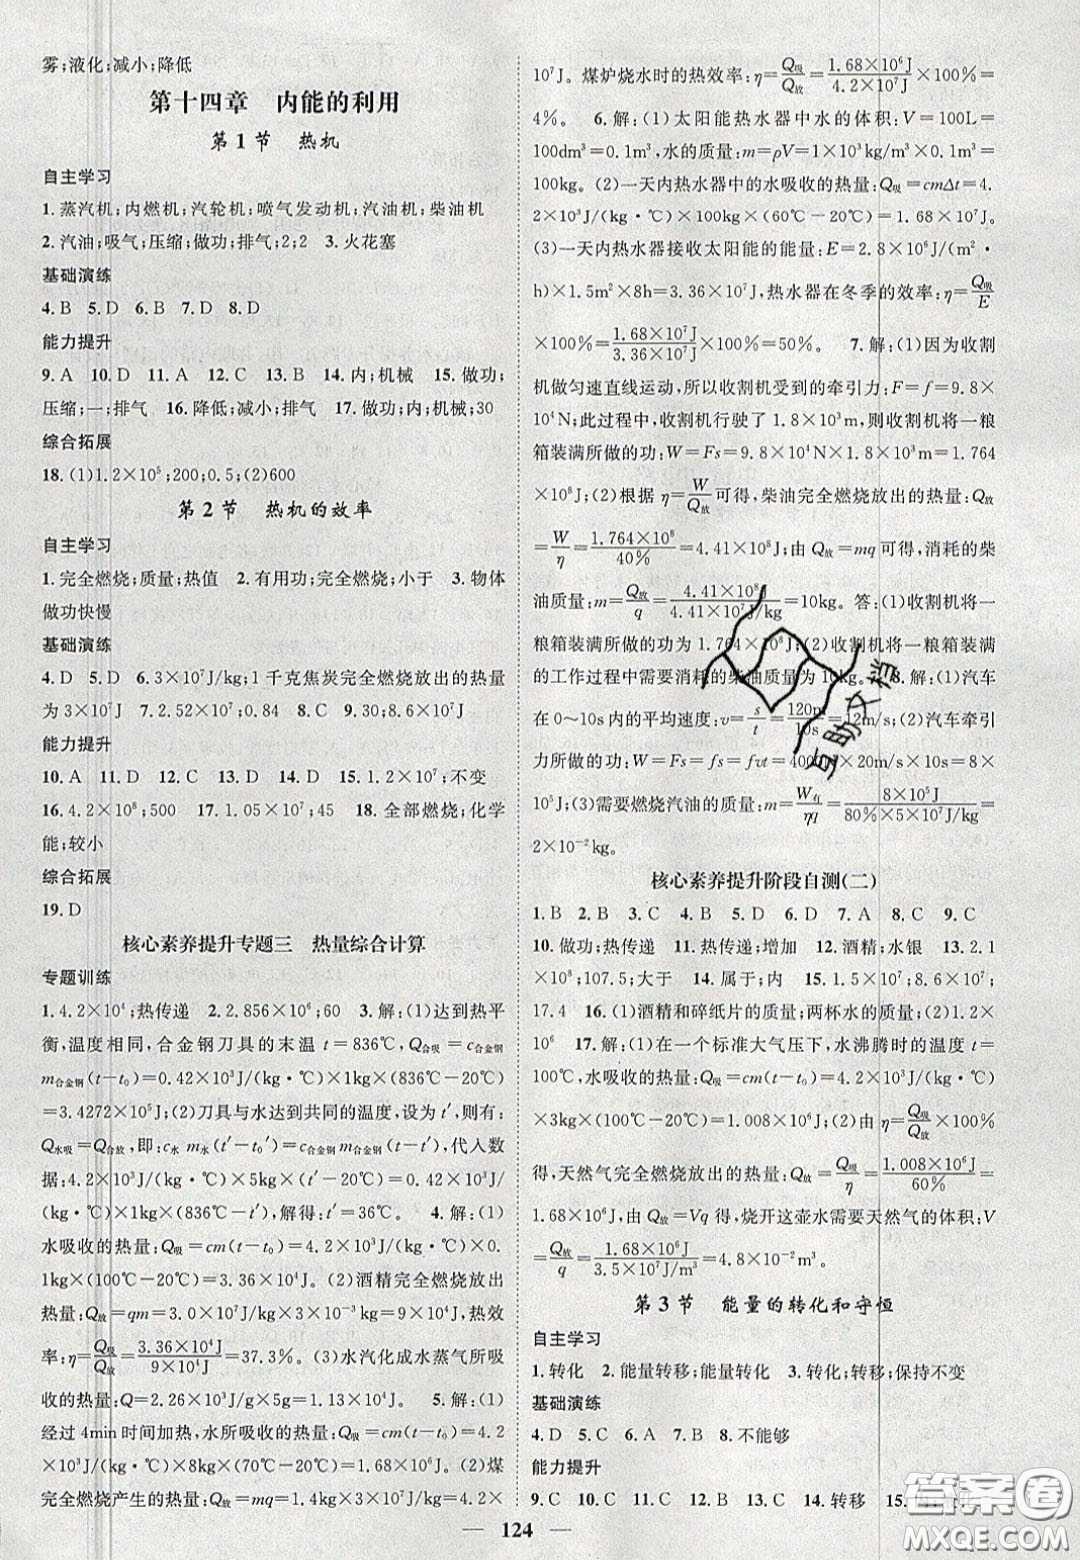 雾;液化;减小;降低
第十四章　内能的利用
第1节　热机
自主学习
1.蒸汽机;内燃机;汽轮机;喷气发动机;汽油机;柴油机
2.汽油;吸气;压缩;做功;排气;2;2　3.火花塞
基础演练
4.B　5.D　6.B　7.D　8.D
能力提升
9.A　10.D　11.A　12.C　13.B　14.内;机械　15.做功;
压缩;一;排气　16.降低;减小;排气　17.做功;内;机械;30
综合拓展
18.(1)1.2×10⁵;200;0.5;(2)600
第2节　热机的效率
自主学习
1.完全燃烧;质量;热值　2.有用功;完全燃烧;小于　3.物体
做功快慢
基础演练
4.D　5.D　6.3×10⁷J/kg;1千克焦炭完全燃烧放出的热量
为3×10⁷J　7.2.52×10⁷;0.84　8.C　9.30;8.6×10⁷J
能力提升
10.A　11.D　12.C　13.B　14.D　15.1.2×10⁷;不变
16.4.2×10⁸;500　17.1.05×10⁷;45　18.全部燃烧;化学
能;较小
综合拓展
19.D
核心素养提升专题三　热量综合计算
专题训练
1.4.2×10⁴;热传递　2.2.856×10⁶;60　3.解:(1)达到热平
衡,温度相同,合金钢刀具的末温 t=836℃,Q合吸=c合金钢
m合金钢(t-t₀)=0.42×10³J/(kg·℃)×1kg×(836℃-20℃)
=3.4272×10⁵J;(2)刀具与水达到共同的温度,设为t′,则有:
Q水吸=Q合放,即:c水 m水(t′-t₀′)=c合金钢m合金钢(t-t′),代入数
据:4.2×10³J/(kg·℃)×5kg×(t′-20℃)=0.42×10³J/
(kg·℃)×1kg×(836℃-t′),解得:t′=36℃。　4.解:(1)
水吸收的热量:Q吸=cm(t-t₀)=4.2×10³J/(kg·℃)×0.
1kg×(100℃-20℃)=3.36×10⁴J。(2)酒精完全燃烧放出
热量:Q放=qm=3.0×10⁷J/kg×3×10⁻³kg=9×10⁴J,热效
率:η=Q吸/Q放=3.36×10⁴J/9×10⁴J=37.3%。(3)水汽化成水蒸气所吸
收的热量:Q=2.26×10³J/g×5g=1.13×10⁴J。　5.解:(1)
经过4min时间加热,水所吸收的热量:Q吸=cm(t-t₀)=4.2
×10³J/(kg·℃)×5kg×(100℃-20℃)=1.68×10⁶J;(2)煤
完全燃烧产生的热量:Q放=mq=1.4kg×3×10⁷J/kg=4.2×
10⁷J。煤炉烧水时的热效率:η=Q吸/Q放=1.68×10⁶J/4.2×10⁷J×100%=
4%。　6.解:(1)太阳能热水器中水的体积:V=100L=
100dm³=0.1m³,水的质量:m=ρV=1×10³kg/m³×0.1m³=
100kg。(2)一天内热水器中的水吸收的热量:Q吸=cmΔt=4.
2×10³J/(kg·℃)×100kg×(60℃-20℃)=1.68×10⁷J。
(3)一天内热水器接收太阳能的能量:E=2.8×10⁶J/(m²·
h)×1.5m²×8h=3.36×10⁷J,热水器在冬季的效率:η=Q吸/E
×100%=1.68×10⁷J/3.36×10⁷J×100%=50%。　7.解:(1)因为收割
机做匀速直线运动,所以收割机受到的牵引力:F=f=9.8×
10⁴N;此过程中,收割机行驶了1.8×10³m,则收割机将一粮
箱装满所做的功:W=Fs=9.8×10⁴N×1.8×10³m=1.764
×10⁸J;(2)根据η=W/Q放可得,柴油完全燃烧放出的热量:Q放
=W/η=1.764×10⁸/40%=4.41×10⁸J;由Q放=mq可得,消耗的柴
油质量:m=Q放/q=4.41×10⁸J/4.41×10⁷J/kg=10kg。答:(1)收割机将一
粮箱装满所做的功为1.764×10⁸J;(2)收割机将一粮箱装满
的工作过程中需要消耗的柴油质量10kg。　8.解:(1)汽车
在0~10s内的平均速度:v=s/t=120m/10s=12m/s;(2)汽车牵引
力所做的功:W=Fs=fs=fvt=4000N×20m/s×10s=8×
10⁵J;(3)需要燃烧汽油的质量:m=W有/ηq=8×10⁵J/80%×5×10⁷J/kg=
2×10⁻²kg。
核心素养提升阶段自测(二)
1.B　2.C　3.C　4.D　5.D　6.D　7.A　8.C　9.C
10.做功;热传递　11.热传递;增加　12.酒精;水银　13.2.1
×10⁸;107.5;大于　14.属于;内　15.1.5×10⁷;8.6×10⁷;
17.4　16.(1)酒精和碎纸片的质量;两杯水的质量;(2)1.2×
10⁶　17.解:(1)在一个标准大气压下,水沸腾时的温度 t=
100℃,水吸收的热量:Q吸=cm(t-t₀)=4.2×10³J/(kg·℃)
×3kg×(100℃-20℃)=1.008×10⁶J;(2)由η=Q吸/Q放×100%
得,天然气完全燃烧放出的热量:Q放=Q吸/η=1.008×10⁶J/60%=
1.68×10⁶J,由Q放=Vq得,烧开这壶水需要天然气的体积:V
=Q放/q=1.68×10⁶J/3.5×10⁷J/m³=4.8×10⁻²m³。
第3节　能量的转化和守恒
自主学习
1.转化　2.能量转移;能量转化　3.转化;转移;保持不变
基础演练
4.D　5.C　6.A　7.B　8.不能够
能力提升
9.C　10.C　11.B　12.C　13.C　14.转移　15.
124
互助文档
答案圈
MXQE.COM